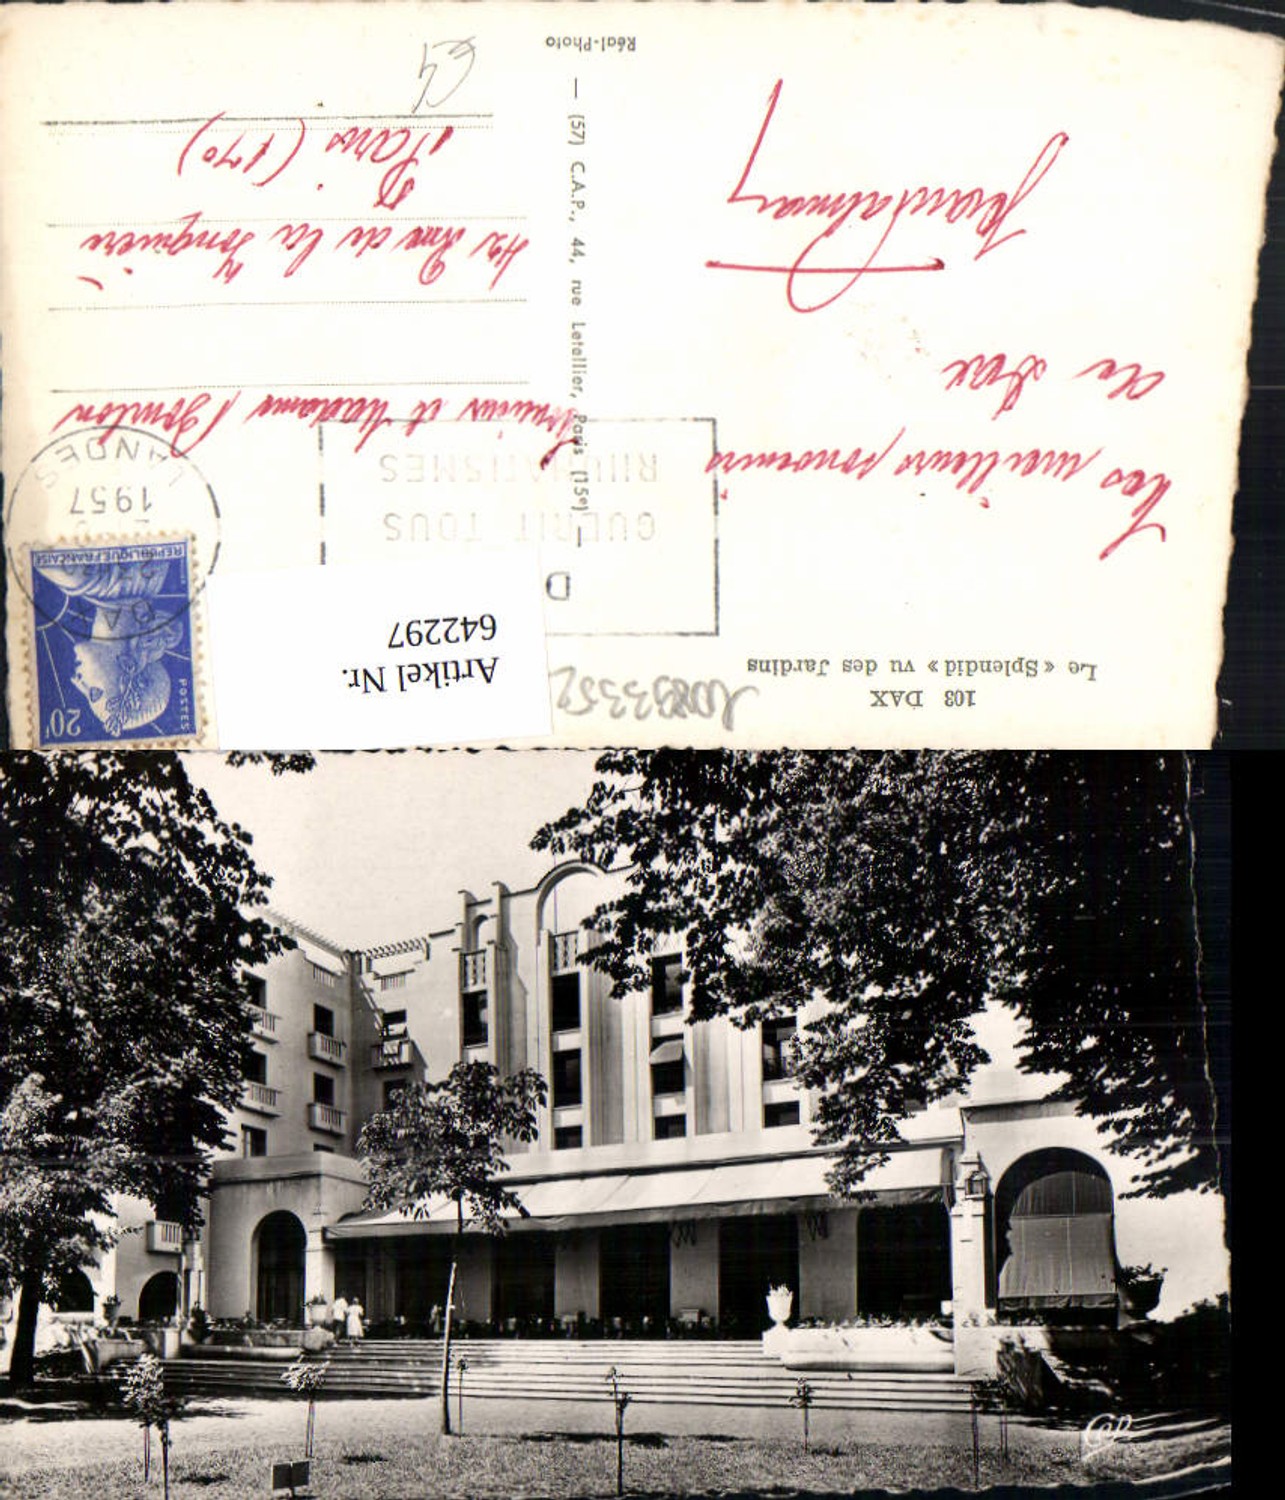 103 DAX
Le « Splendid » vu des Jardins
Nos meilleurs souvenirs
de Dax
Monsieur et Madame
42 Rue de la Jonquière
Paris (17e)
— (57) C.A.P., 44, rue Letellier, Paris (15e) —
Réal-Photo
Artikel Nr.
642297
D
GUERIT TOUS
RHUMATISMES
DAX
1957
LANDES
20F
POSTES
REPUBLIQUE FRANÇAISE
CAP